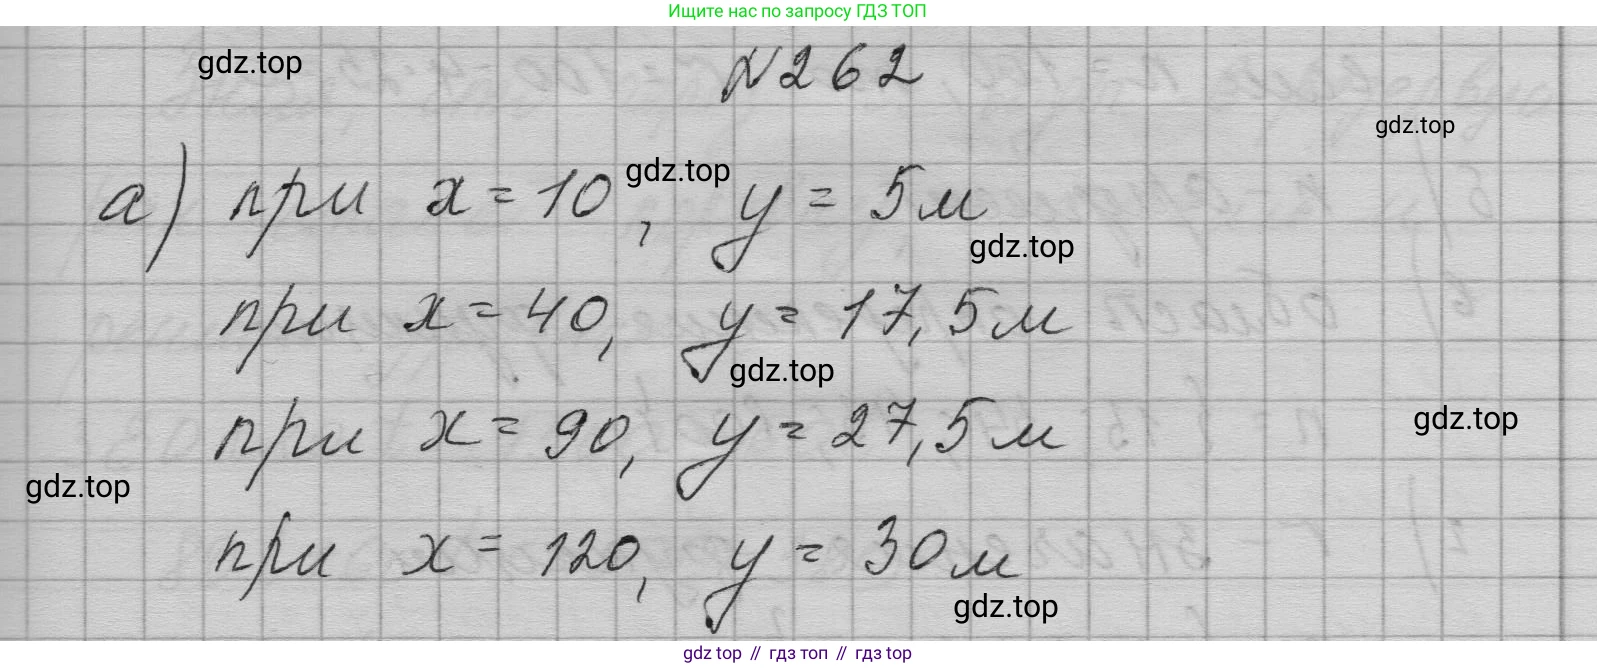 Ищите нас по запросу ГДЗ ТОП
gdz.top
№262
gdz.top
а) при x = 10, y = 5м
gdz.top
gdz.top
при x = 40, y = 17,5м
gdz.top
при x = 90, y = 27,5м
gdz.top
gdz.top
при x = 120, y = 30м
gdz.top
gdz top // гдз топ // gdz top